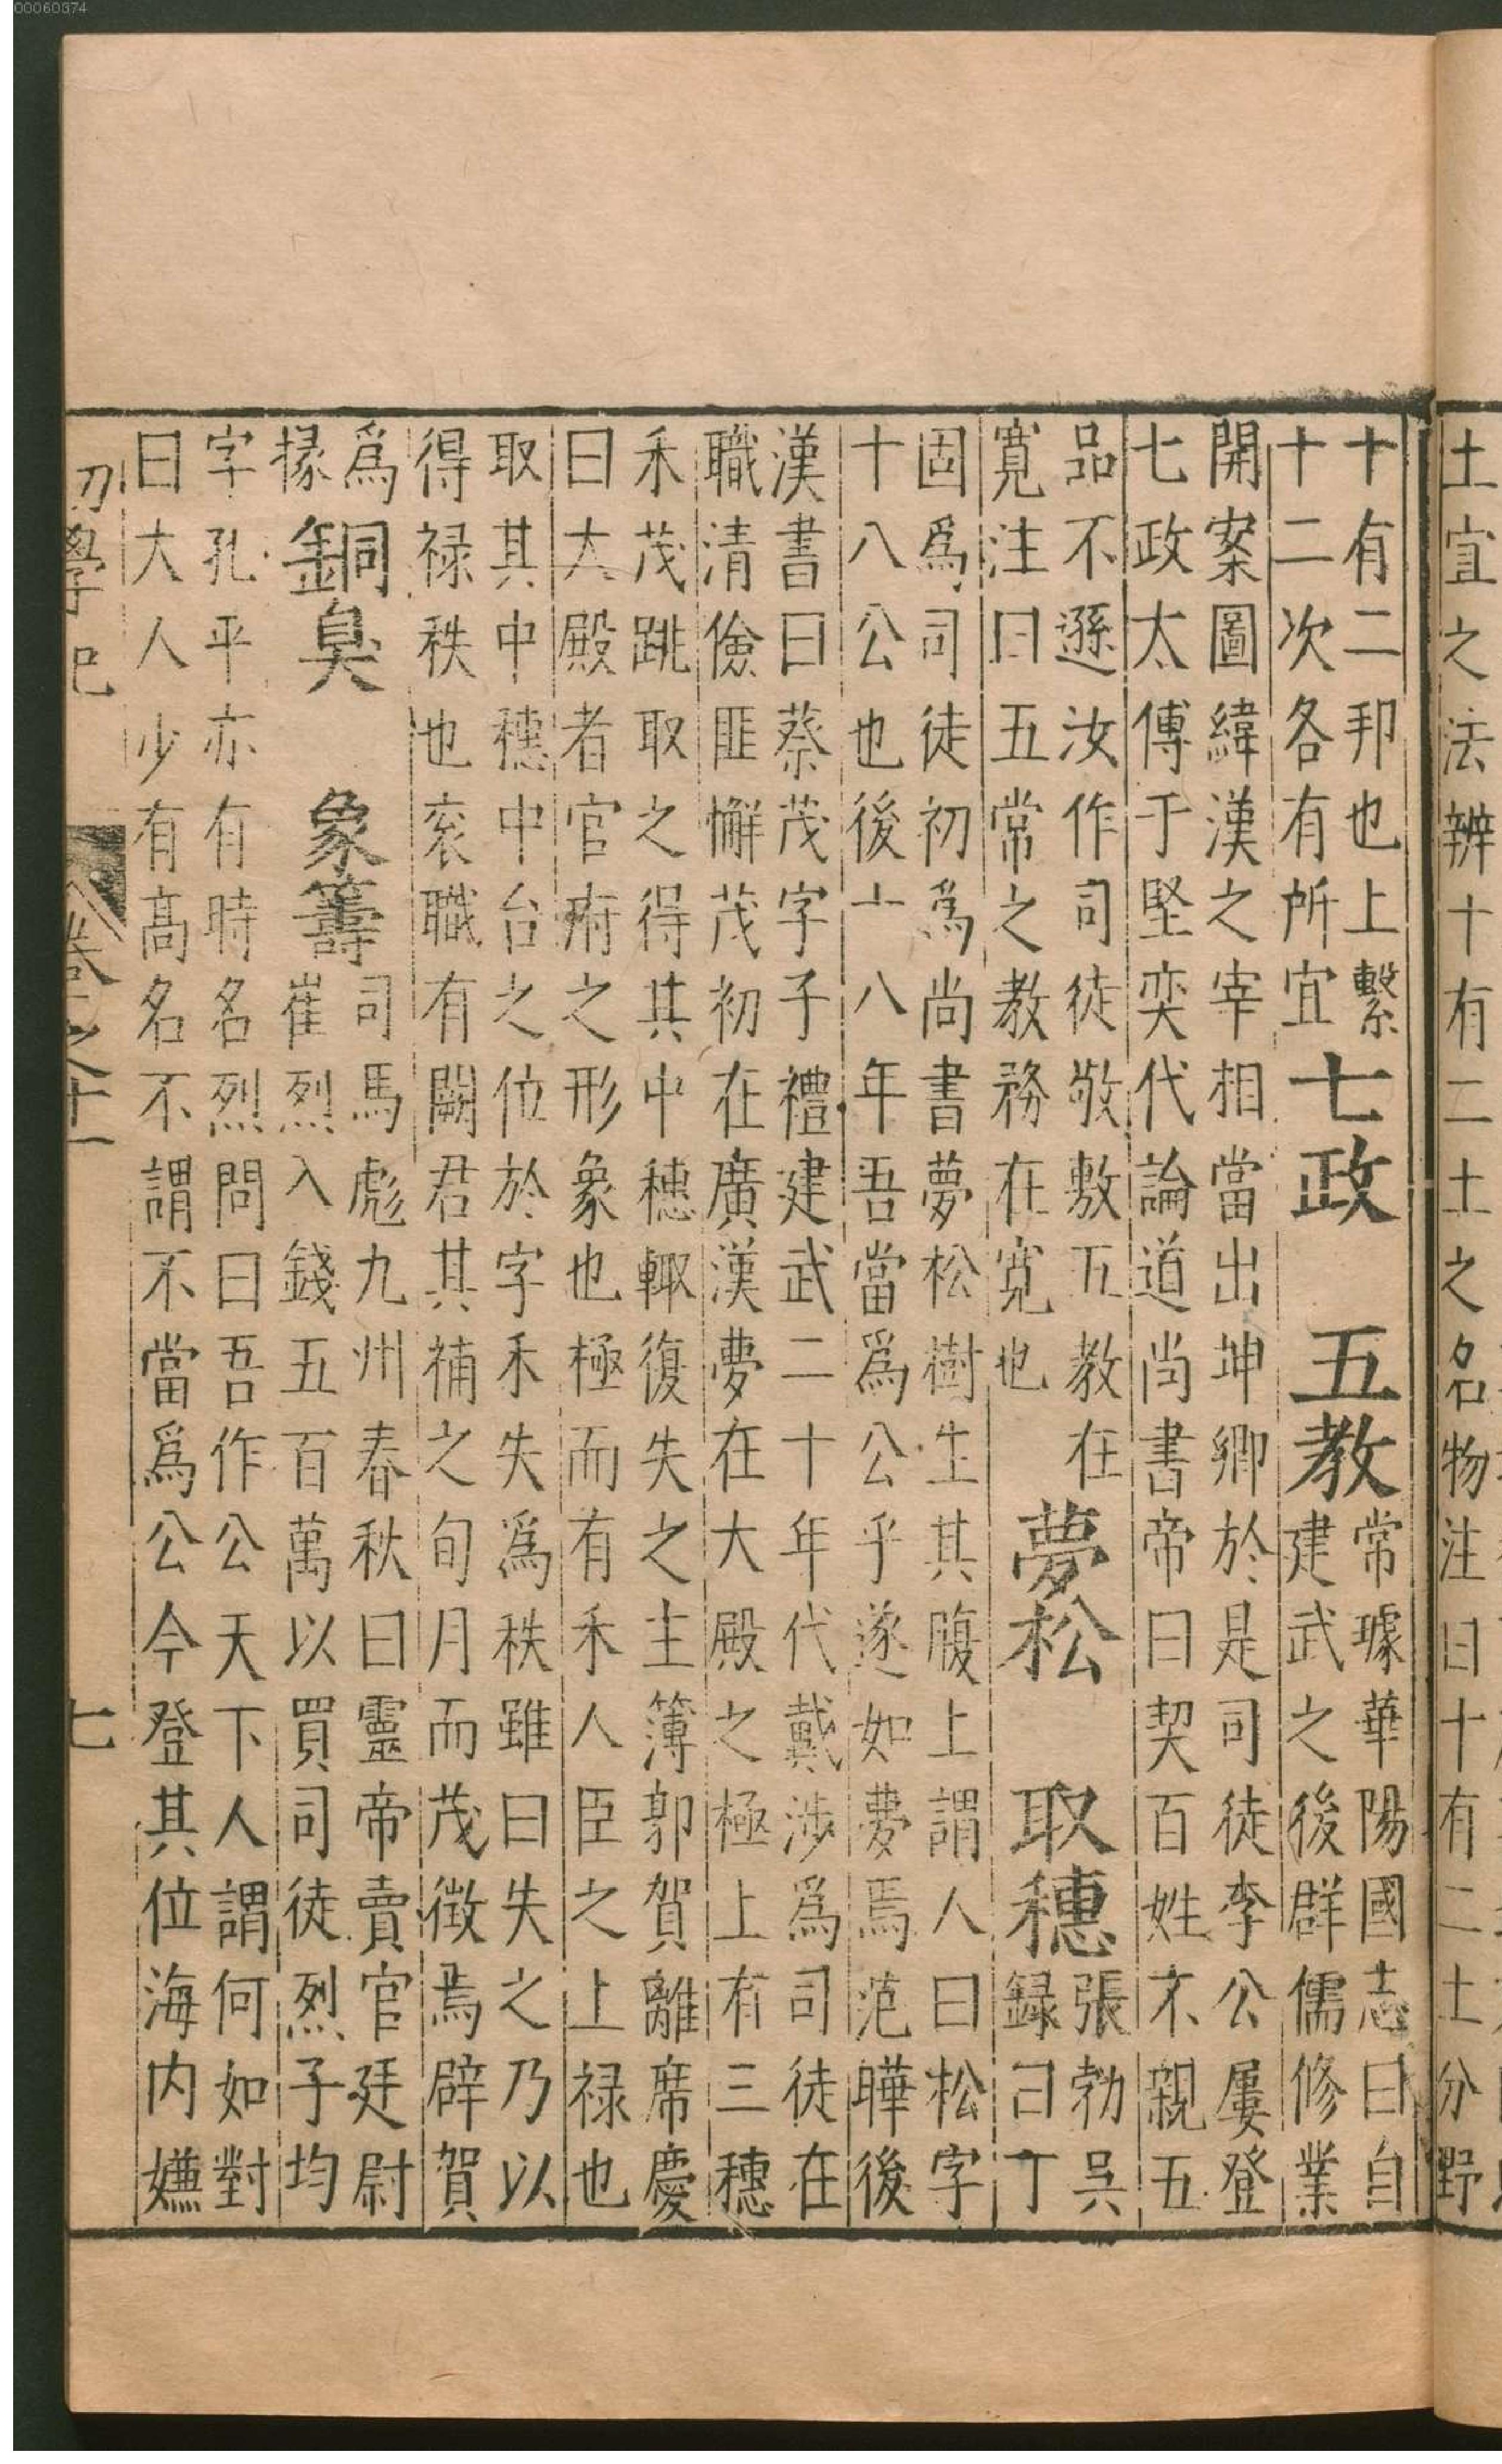 土宜之法辨十有二土之名物注曰十有二土分野
十有二邦也上繫
十二次各有所宜
七政　五教
常璩華陽國志曰自
建武之後群儒修業
開案圖緯漢之宰相當出坤鄉於是司徒李公屢登
七政太傅于堅奕代論道尚書帝曰契百姓不親五
品不遜汝作司徒敬敷五教在
寬注曰五常之教務在寬也
夢松　取穗
張勃吳
録曰丁
固爲司徒初爲尚書夢松樹生其腹上謂人曰松字
十八公也後十八年吾當爲公乎遂如夢焉范曄後
漢書曰蔡茂字子禮建武二十年代戴涉爲司徒在
職清儉匪懈茂初在廣漢夢在大殿之極上有三穗
禾茂跳取之得其中穗輙復失之主簿郭賀離席慶
曰大殿者官府之形象也極而有禾人臣之上禄也
取其中穗中台之位於字禾失爲秩雖曰失之乃以
得禄秩也衮職有闕君其補之旬月而茂徵焉辟賀
爲
掾
銅臭　象籌
司馬彪九州春秋曰靈帝賣官廷尉
崔烈入錢五百萬以買司徒烈子均
字孔平亦有時名烈問曰吾作公天下人謂何如對
曰大人少有高名不謂不當爲公今登其位海内嫌
初學記　卷之十一　七
00060374